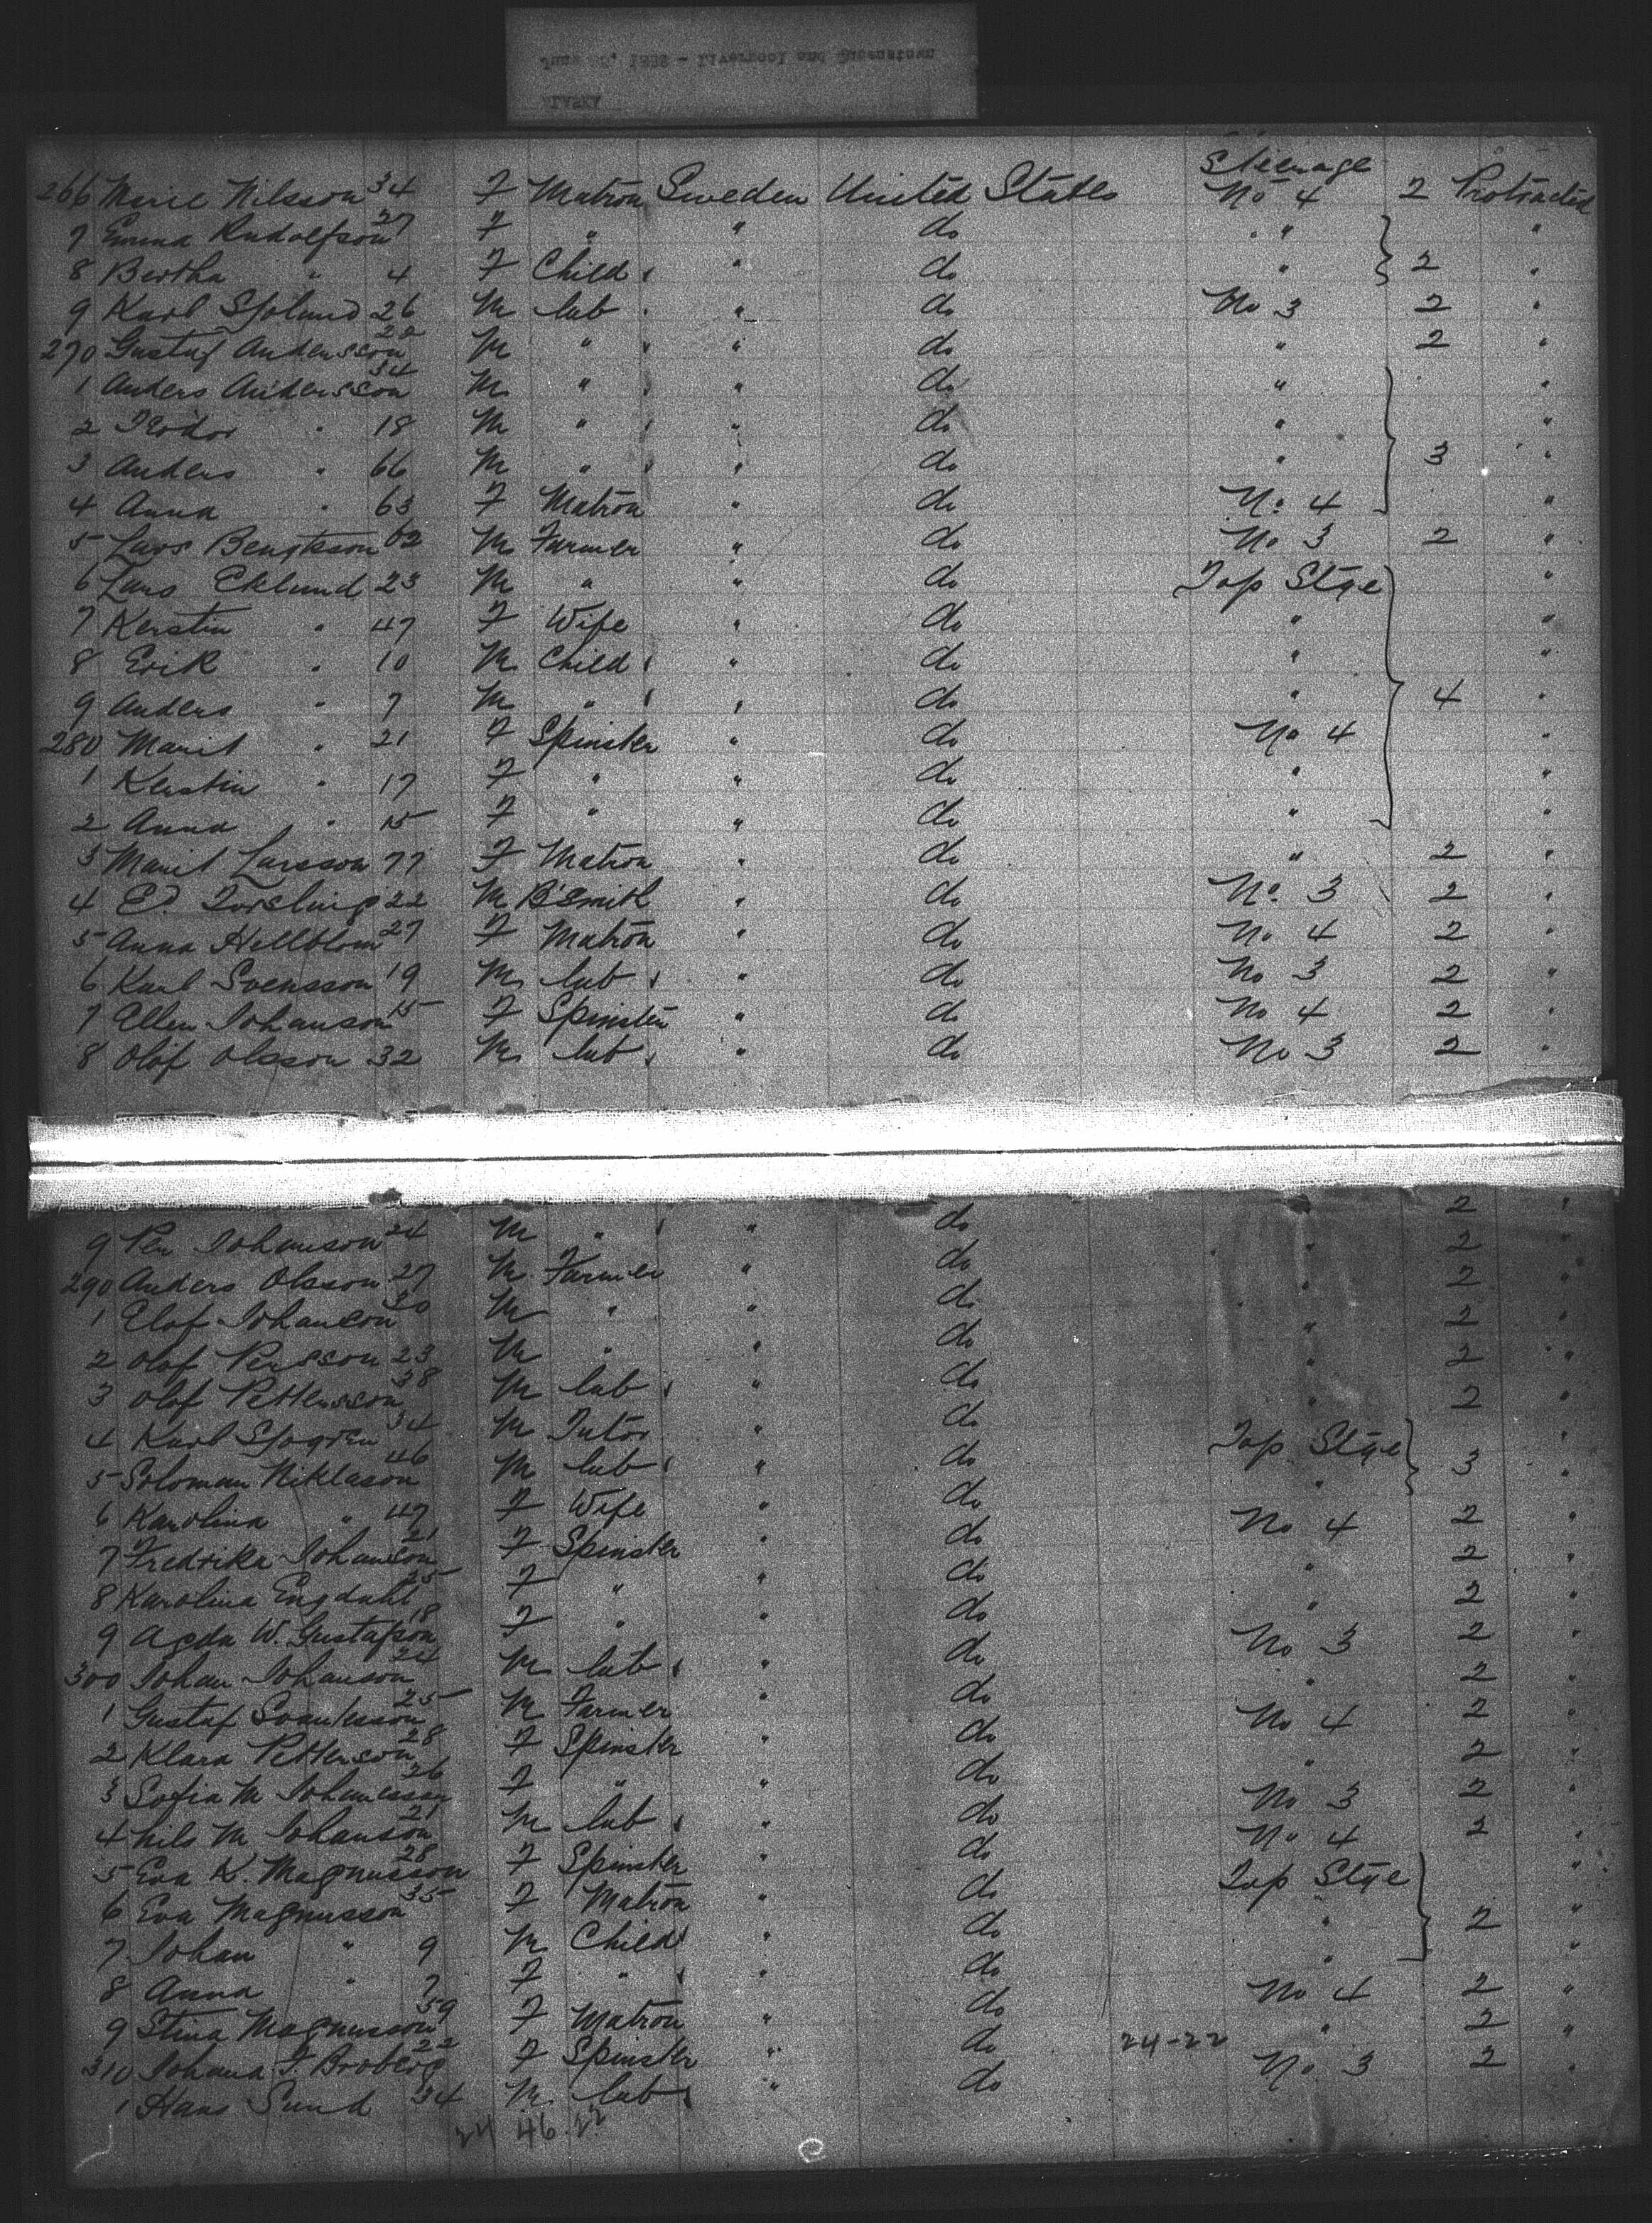 266 Marie Nilsson 34 F Matron Sweden United States Steerage No 4 2 Protracted
7 Emma Rudolfson 27 F " " do " "
8 Bertha " 4 F Child " do " 2 "
9 Karl Sjolund 26 M lab " do No 3 2 "
270 Gustaf Andersson 22 M " " do " 2 "
1 Anders Andersson 34 M " " do " "
2 Teodor " 18 M " " do " "
3 Anders " 66 M " " do " 3 "
4 Anna " 63 F Matron " do No 4 "
5 Lars Bengtsson 62 M Farmer " do No 3 2 "
6 Lars Eklund 23 M " " do Top Stge "
7 Kerstin " 47 F Wife " do " "
8 Erik " 10 M Child " do " "
9 Anders " 7 M " " do " 4 "
280 Marit " 21 F Spinster " do No 4 "
1 Kerstin " 17 F " " do " "
2 Anna " 15 F " " do " "
3 Marit Larsson 77 F Matron " do " 2 "
4 E. Torsling 22 M B'Smith " do No. 3 2 "
5 Anna Hellblom 27 F Matron " do No 4 2 "
6 Karl Svensson 19 M lab " do No 3 2 "
7 Ellen Johanson 15 F Spinster " do No 4 2 "
8 Olof Olsson 32 M lab " do No 3 2 "
9 Per Johanson 24 M " " do " 2 "
290 Anders Olsson 27 M Farmer " do " 2 "
1 Elof Johanson 30 M " " do " 2 "
2 Olof Persson 23 M " " do " 2 "
3 Olof Pettersson 38 M lab " do " 2 "
4 Karl Sjogren 34 M Tutor " do " 2 "
5 Soloman Niklason 46 M lab " do Top Stge "
6 Karolina " 47 F Wife " do " 3 "
7 Fredrika Johanson 21 F Spinster " do No 4 2 "
8 Karolina Engdahl 25 F " " do " 2 "
9 Agda W. Gustafson 18 F " " do " 2 "
300 Johan Johanson 24 M lab " do No 3 2 "
1 Gustaf Svantesson 25 M Farmer " do " 2 "
2 Klara Petterson 28 F Spinster " do No 4 2 "
3 Sofia M Johanesson 26 F " " do " 2 "
4 Nils M Johanson 21 M lab " do No 3 2 "
5 Eva K. Magnusson 28 F Spinster " do No 4 2 "
6 Eva Magnusson 35 F Matron " do Top Stge "
7 Johan " 9 M Child " do " 2 "
8 Anna " 7 F " " do " "
9 Stina Magnusson 59 F Matron " do No 4 2 "
310 Johana F. Broberg 22 F Spinster " do 24-22 " 2 "
1 Hans Sund 34 M lab " do No 3 2 "
24 46.22